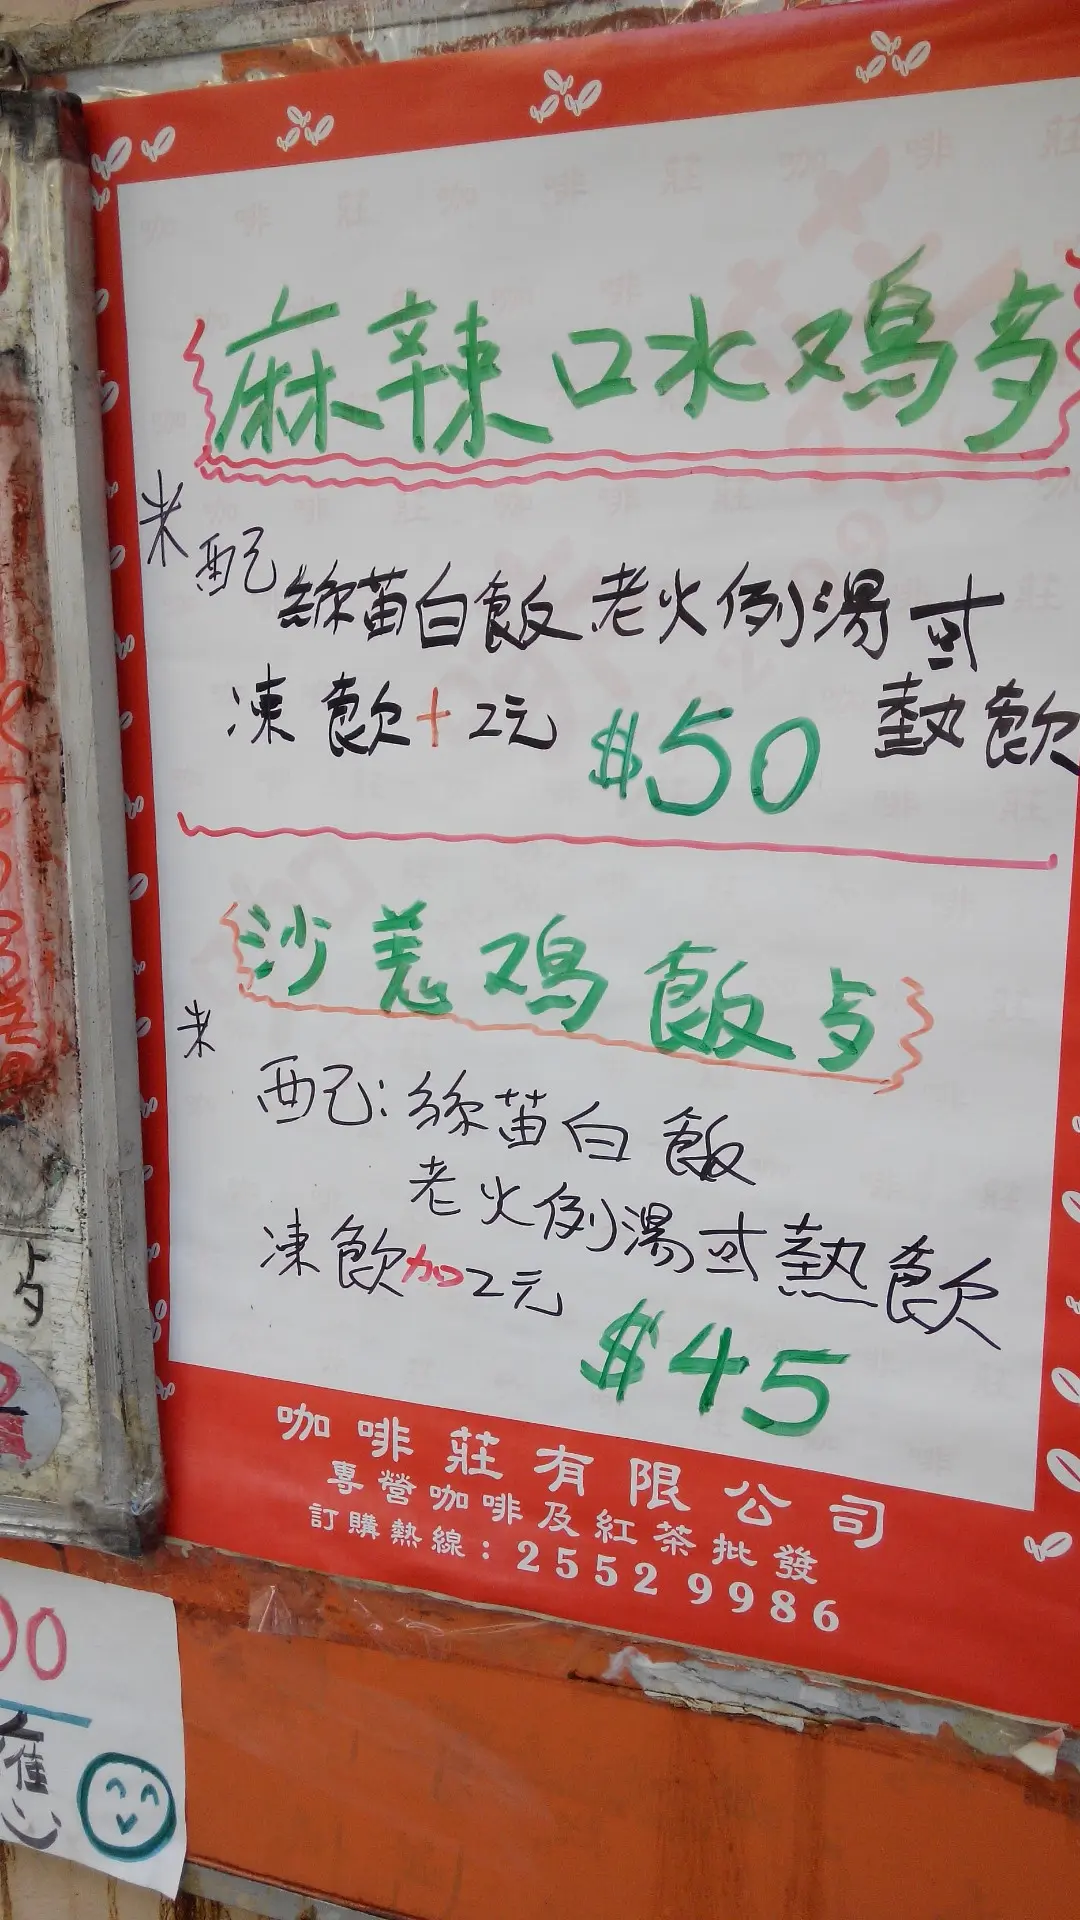 麻辣口水鸡歺
配 絲苗白飯 老火例湯 或
熱飲
凍飲+2元 $50
沙羌鸡飯歺
配:絲苗白飯
老火例湯或熱飲
凍飲加2元
$45
咖啡莊有限公司
專營咖啡及紅茶批發
訂購熱線:2552 9986
歺
2
00